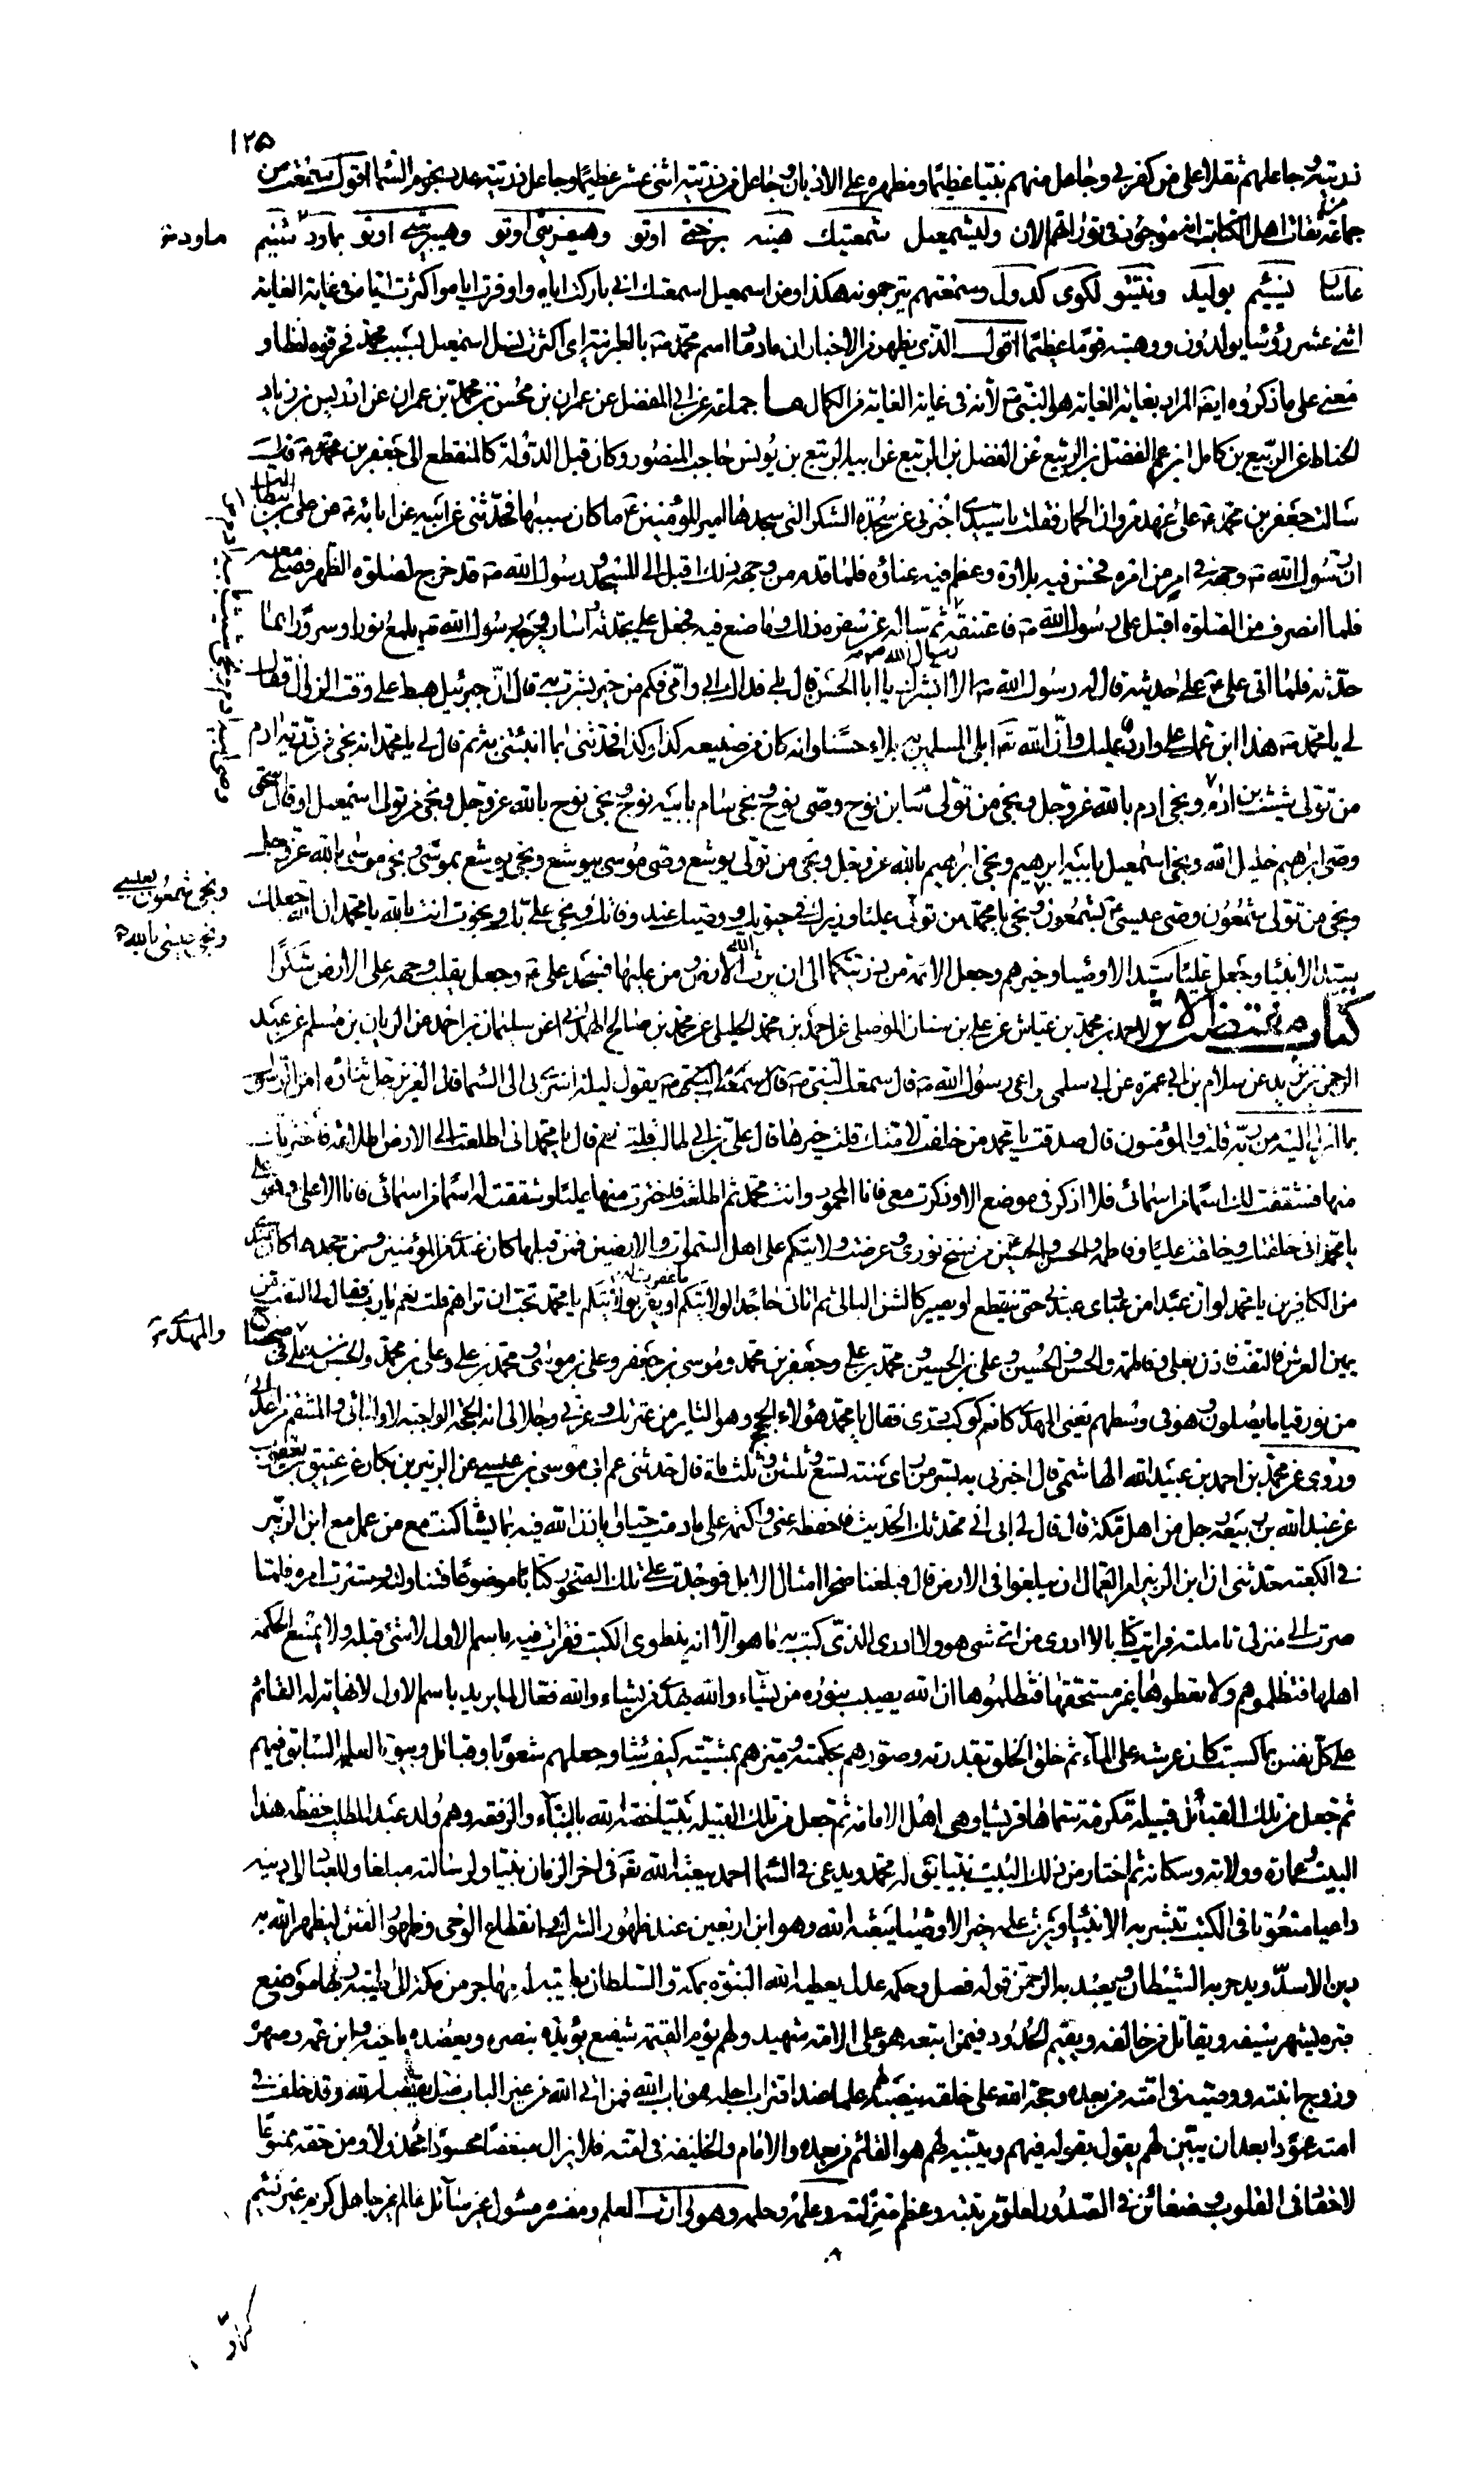 ١٢٥
ذريته وجاعلهم ثقلا على من كفر بي وجاعل منهم نبيا عظيما ومظهره على الاديان وجاعل من ذريته اثنى عشر عظيما وجاعل ذريته عدد نجوم السماء اقول سمعت من
جماعة ثقات اهل الكتاب انه موجود في توراتهم الان وليشمعيل شمعتيك هينه برختي اوتو وهيفريتي اوتو وهيربيتي اوتو بماود شنيم
ماود
عاسار نسيئيم يوليد ونتيتو لكوى كدول وسمعتهم يترجمونه هكذا ومن اسمعيل اسمعتك اني باركت اياه واوفرت اياه واكثرت اياه في غاية الغاية
اثنى عشر رؤسا يولدون ووهبته قوما عظيما اقول الذي يظهر من الاخبار ان مادماد اسم محمد بالعبرانية اي اكثرت نسل اسمعيل بسبب محمد
معنى على ما ذكروه ايضا المراد بغاية الغاية هو النبي لأنه في غاية الغاية من الكمال ما جماعة عن ابي المفضل عن عمران بن محسن بن محمد بن عمران عن ادريس بن زياد
الحناط عن الربيع بن كامل ابن عم الفضل بن الربيع عن الفضل بن الربيع عن ابيه الربيع بن يونس حاجب المنصور وكان قبل الدولة كالمنقطع الى جعفر بن محمد قال
سالت جعفر بن محمد على عهد مروان الحمار فقلت يا سيدي اخبرني عن سجدة الشكر التي سجدها امير المؤمنين ما كان سببها فحدثني عن ابيه عن ابائه عن علي بن ابي طالب
ان رسول الله وجهه في امر من امره فحسن فيه بلاؤه وعظم فيه عناؤه فلما قدم من وجهه ذلك اقبل الى المسجد ورسول الله قد خرج لصلوة الظهر فصلى معه
فلما انصرف من الصلوة اقبل على رسول الله فاعتنقه ثم ساله عن سفره ذلك وما صنع فيه فجعل علي يحدثه واسارير وجه رسول الله تلمع نورا وسرورا بما
حدثه فلما اتى علي على حديثه قال له رسول الله الا ابشرك يا ابا الحسن قال بلى فداك ابي وامي فكم من خير بشرت به قال ان جبرئيل هبط علي وقت الزوال فقال
لي يا محمد هذا ابن عمك علي وارد عليك وان الله ابلى المسلمين به بلاء حسنا وانه كان من صنيعه كذا وكذا فحدثني بما انبئتني به ثم قال لي يا محمد انه نجى من ذرية ادم
من تولى شيث بن ادم ونجى ادم بالله عز وجل ونجى من تولى سام بن نوح وصي نوح ونجى سام بابيه نوح ونجى نوح بالله عز وجل ونجى من تولى اسمعيل او قال اسحق
وصي ابراهيم خليل الله ونجى اسمعيل بابيه ابرهيم ونجى ابرهيم بالله عز وجل ونجى من تولى يوشع وصي موسى بيوشع ونجى يوشع بموسى ونجى موسى بالله عز وجل
ونجى من تولى شمعون وصي عيسى بشمعون ونجى يا محمد من تولى عليا وزيرك في حيوتك ووصيك عند وفاتك ونجى علي بك ونجوت انت بالله يا محمد ان الله جعلك
ونجى شمعون بعيسى
ونجى عيسى بالله
سيد الانبياء وجعل عليا سيد الاوصياء وخيرهم وجعل الائمة من ذريتكما الى ان يرث الله الارض ومن عليها فسجد علي وجعل يقلب وجهه على الارض شكرا
كتاب مقتضب الاثر لاحمد بن محمد بن عياش عن علي بن سنان الموصلي عن احمد بن محمد الخليلي عن محمد بن صالح الهمداني عن سليمان بن احمد عن الريان بن مسلم عن عبد
الرحمن بن يزيد عن سلام بن ابي عمرة عن ابي سلمى راعي رسول الله قال سمعت النبي يقول ليلة اسري بي الى السماء قال العزيز جل ثناؤه امن الرسول
بما انزل اليه من ربه قلت والمؤمنون قال صدقت يا محمد من خلفت لامتك قلت خيرها قال علي بن ابي طالب قلت نعم قال يا محمد اني اطلعت الى الارض اطلاعة فاخترتك
منها فشققت لك اسما من اسمائي فلا اذكر في موضع الا وذكرت معي فانا المحمود وانت محمد ثم اطلعت فاخترت منها عليا وشققت له اسما من اسمائي فانا الاعلى وهو علي
يا محمد اني خلقتك وخلقت عليا وفاطمة والحسن والحسين من سنخ نوري وعرضت ولايتكم على اهل السموات والارضين فمن قبلها كان عندي من المؤمنين ومن جحدها كان عندي
من الكافرين يا محمد لو ان عبدا من عبادي عبدني حتى ينقطع او يصير كالشن البالي ثم اتاني جاحدا لولايتكم ما غفرت له او يقر بولايتكم يا محمد تحب ان تراهم قلت نعم يا رب فقال لي التفت عن
يمين العرش فالتفت فاذن بعلي وفاطمة والحسن والحسين وعلي بن الحسين ومحمد بن علي وجعفر بن محمد وموسى بن جعفر وعلي بن موسى ومحمد بن علي وعلي بن محمد والحسن بن علي في ضحضاح
والمهدي
من نور قياما يصلون وهو في وسطهم يعني المهدي كانه كوكب دري فقال يا محمد هؤلاء الحجج وهو الثاير من عترتك وعزتي وجلالي انه الحجة الواجبة لاوليائي والمنتقم من اعدائي
وروى عن محمد بن احمد بن عبيد الله الهاشمي قال اخبرني به بسر من راى سنة تسع وثلثين وثلثمائة قال حدثني عم ابي موسى بن عيسى عن الزبير بن بكار عن عتيق بن يعقوب
عن عبد الله بن ربيعة رجل من اهل مكة قال قال لي ابي اني محدثك الحديث فاحفظه عني واكتمه علي ما دمت حيا او ياذن الله فيه بما يشاء كنت مع من عمل مع ابن الزبير
في الكعبة حدثني ان ابن الزبير امر العمال ان يبلغوا في الارض قال فبلغنا صخرا امثال الابل فوجدت على تلك الصخور كتابا موضوعا فتناولته وسترت امره فلما
صرت الى منزلي تاملته فرايت كتابا لا ادري من اي شي هو ولا ادري الذي كتب به ما هو الا انه ينطوي كالكتب فقرات فيه باسم الاول لا شئ قبله ولا تمنعوا الحكمة
اهلها فتظلموهم ولا تعطوها غير مستحقها فتظلموها ان الله يصيب بنوره من يشاء والله يهدي من يشاء والله فعال لما يريد باسم الاول لا نهاية له القائم
على كل نفس بما كسبت كان عرشه على الماء ثم خلق الخلق بقدرته وصورهم بحكمته وميزهم بمشيته كيف شاء وجعلهم شعوبا وقبائل وبيوتا لعلمه السابق فيهم
ثم جعل من تلك القبائل قبيلة مكرمة سماها قريشا وهي اهل الامامة ثم جعل من تلك القبيلة بيتا خصه الله بالنبأ والرفعة وهم ولد عبد المطلب حفظة هذا
البيت وعماره وولاته وسكانه ثم اختار من ذلك البيت نبيا يقال له محمد ويدعى في السماء احمد يبعثه الله تعالى في اخر الزمان نبيا ولرسالته مبلغا وللعباد الى دينه
داعيا منعوتا في الكتب تبشر به الانبياء ويرث علمه خير الاوصياء يبعثه الله وهو ابن اربعين عند ظهور الشرك وانقطاع الوحي وظهور الفتن ليظهر الله به
دين الاسلام ويدحر به الشيطان ويعبد به الرحمن قوله فصل وحكمه عدل يعطيه الله النبوة بمكة والسلطان بطيبة له مهاجر من مكة الى طيبة وبها موضع
قبره يشهر سيفه ويقاتل من خالفه ويقيم الحدود فيمن اتبعه هو على الامة شهيد ولهم يوم القيمة شفيع يؤيده بنصره ويعضده باخيه وابن عمه وصهره
وزوج ابنته ووصيه في امته من بعده وحجة الله على خلقه ينصبه لهم علما عند اقتراب اجله هو باب الله فمن اتى الله من غير الباب ضل يقبضه الله وقد خلف في
امته عمودا بعد ان يبين لهم يقول بقوله فيهم ويبينه لهم هو القائم من بعده والامام والخليفة في امته فلا يزال مبغضا محسودا مخذولا ومن حقه ممنوعا
لاحقاد في القلوب وضغائن في الصدور لعلو مرتبته وعظم منزلته وعلمه وحلمه وهو وارث العلم ومفسره مسئول غير سائل عالم غير جاهل كريم غير لئيم
كرار